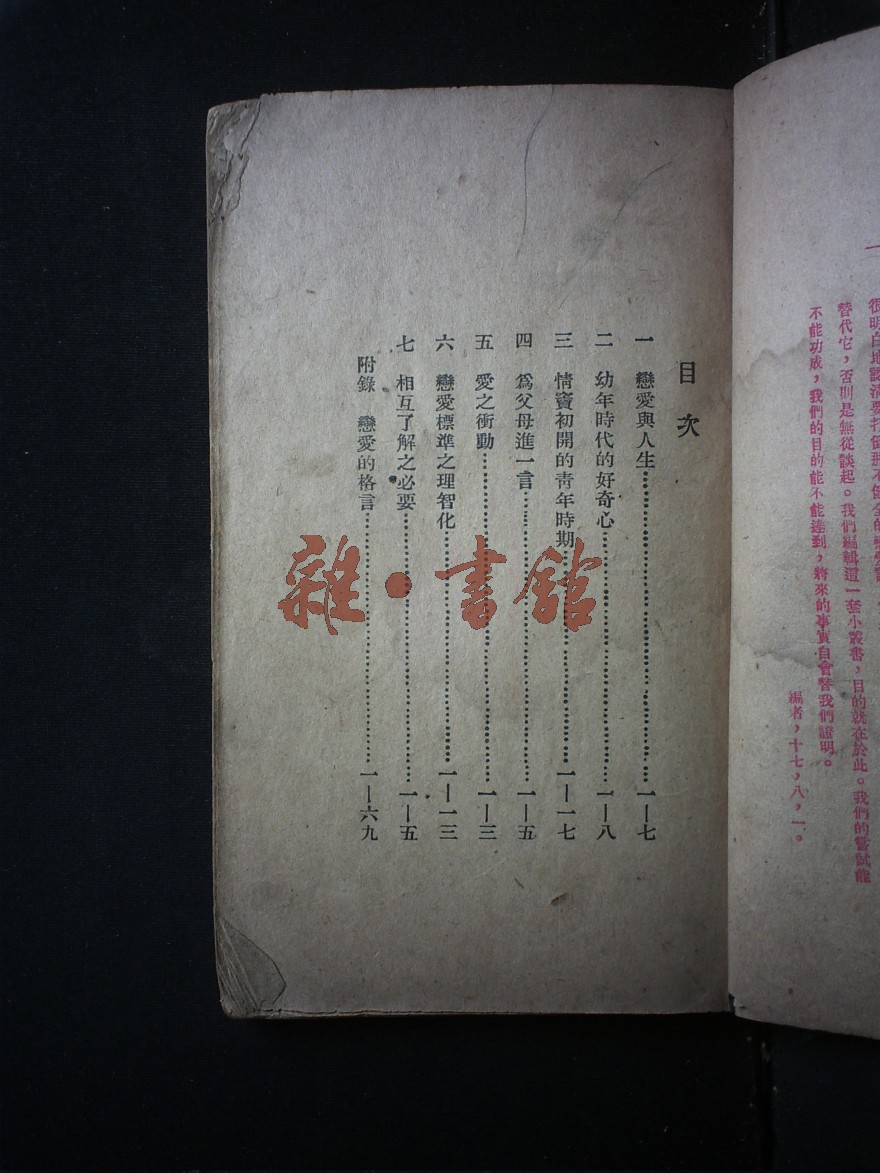 很明白地認清要打倒那不健全的戀愛
替代它,否則是無從談起。我們編輯這一套小叢書,目的就在於此。我們的嘗試能
不能功成,我們的目的能不能達到,將來的事實自會替我們證明。
編者,十七,八,一。
目次
一 戀愛與人生……一—七
二 幼年時代的好奇心……一—八
三 情竇初開的青年時期……一—一七
四 爲父母進一言……一—五
五 愛之衝動……一—三
六 戀愛標準之理智化……一—一三
七 相互了解之必要……一—五
附錄 戀愛的格言……一—六九
雜·書館